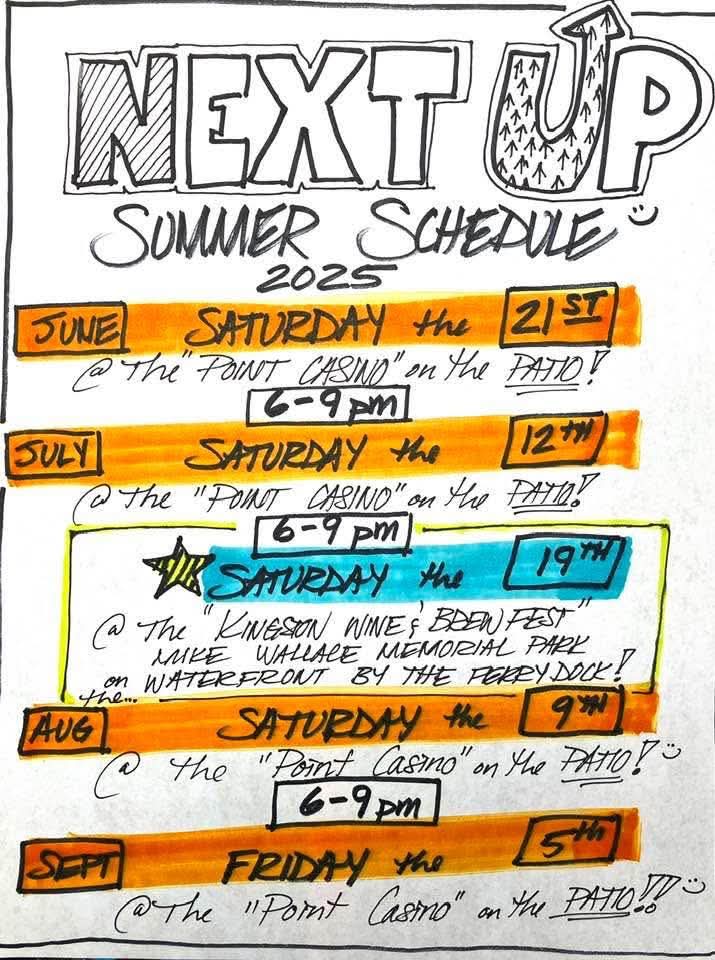 NEXT UP
SUMMER SCHEDULE
2025
JUNE SATURDAY the 21ST
@ The "POINT CASINO" on the PATIO!
6-9 pm
JULY SATURDAY the 12TH
@ The "POINT CASINO" on the PATIO!
6-9 pm
SATURDAY the 19TH
@ The "KINGSTON WINE & BREW FEST"
MIKE WALLACE MEMORIAL PARK
on the... WATERFRONT BY THE FERRY DOCK!
AUG SATURDAY the 9TH
@ The "Point Casino" on the PATIO!
6-9 pm
SEPT FRIDAY the 5th
@ The "Point Casino" on the PATIO!!!